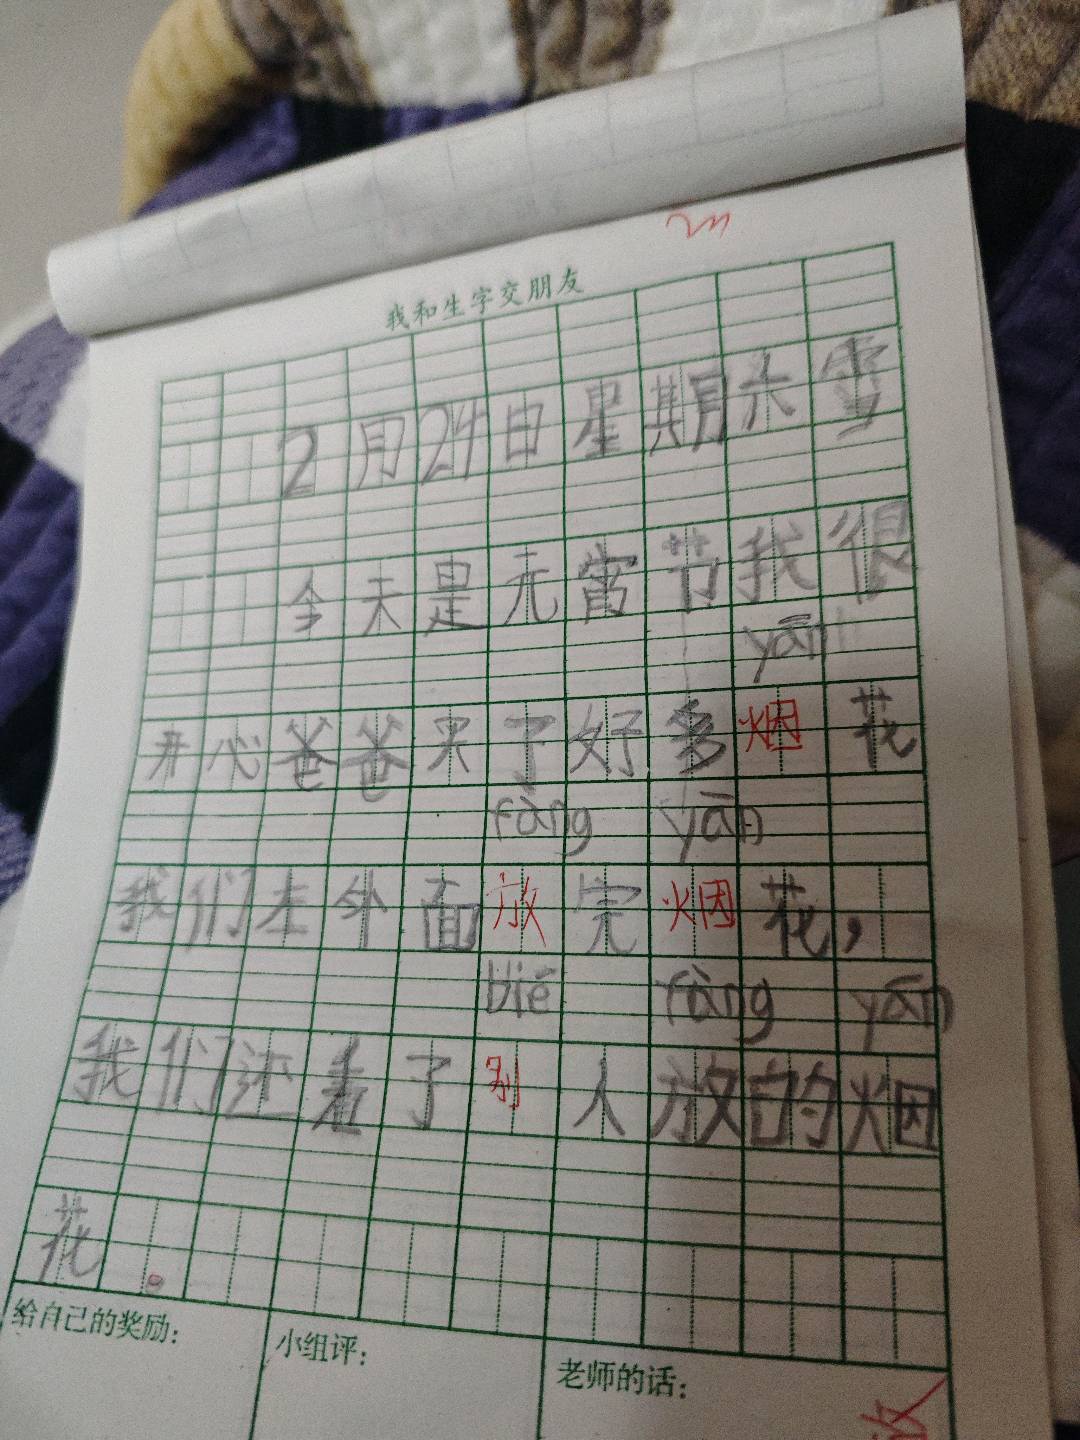 我和生字交朋友
2月24日星期六雪
今天是元宵节我很
yān
开心爸爸买了好多烟花
fàng yān
我们在外面放完烟花，
bié fàng yān
我们还看了别人放的烟
花。
给自己的奖励:
小组评:
老师的话:
放